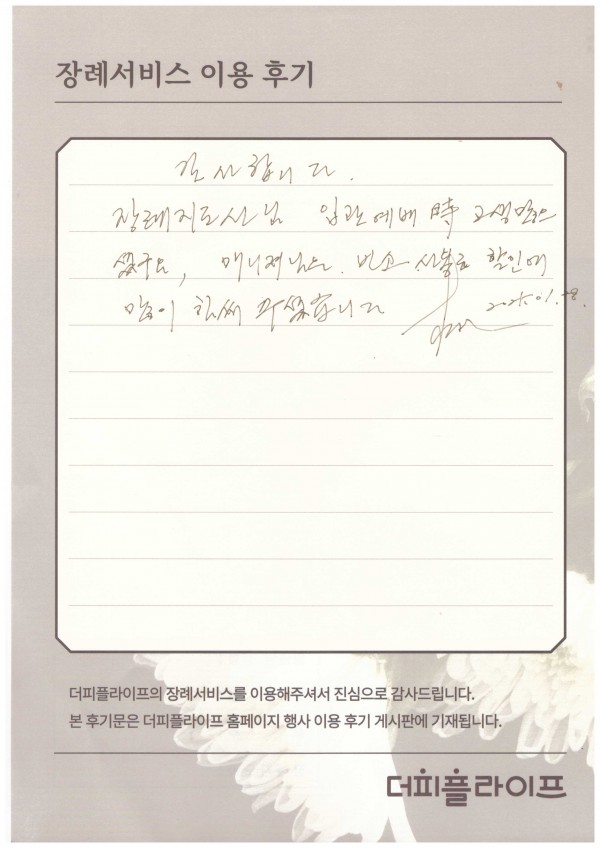 장례서비스 이용 후기
감사합니다.
장례지도사님 입관예배 時 고생많으
셨구요, 매니저님은 빈소 사용료 할인에
많이 힘써 주셨습니다
2025.01.28.
더피플라이프의 장례서비스를 이용해주셔서 진심으로 감사드립니다.
본 후기문은 더피플라이프 홈페이지 행사 이용 후기 게시판에 기재됩니다.
더피플라이프